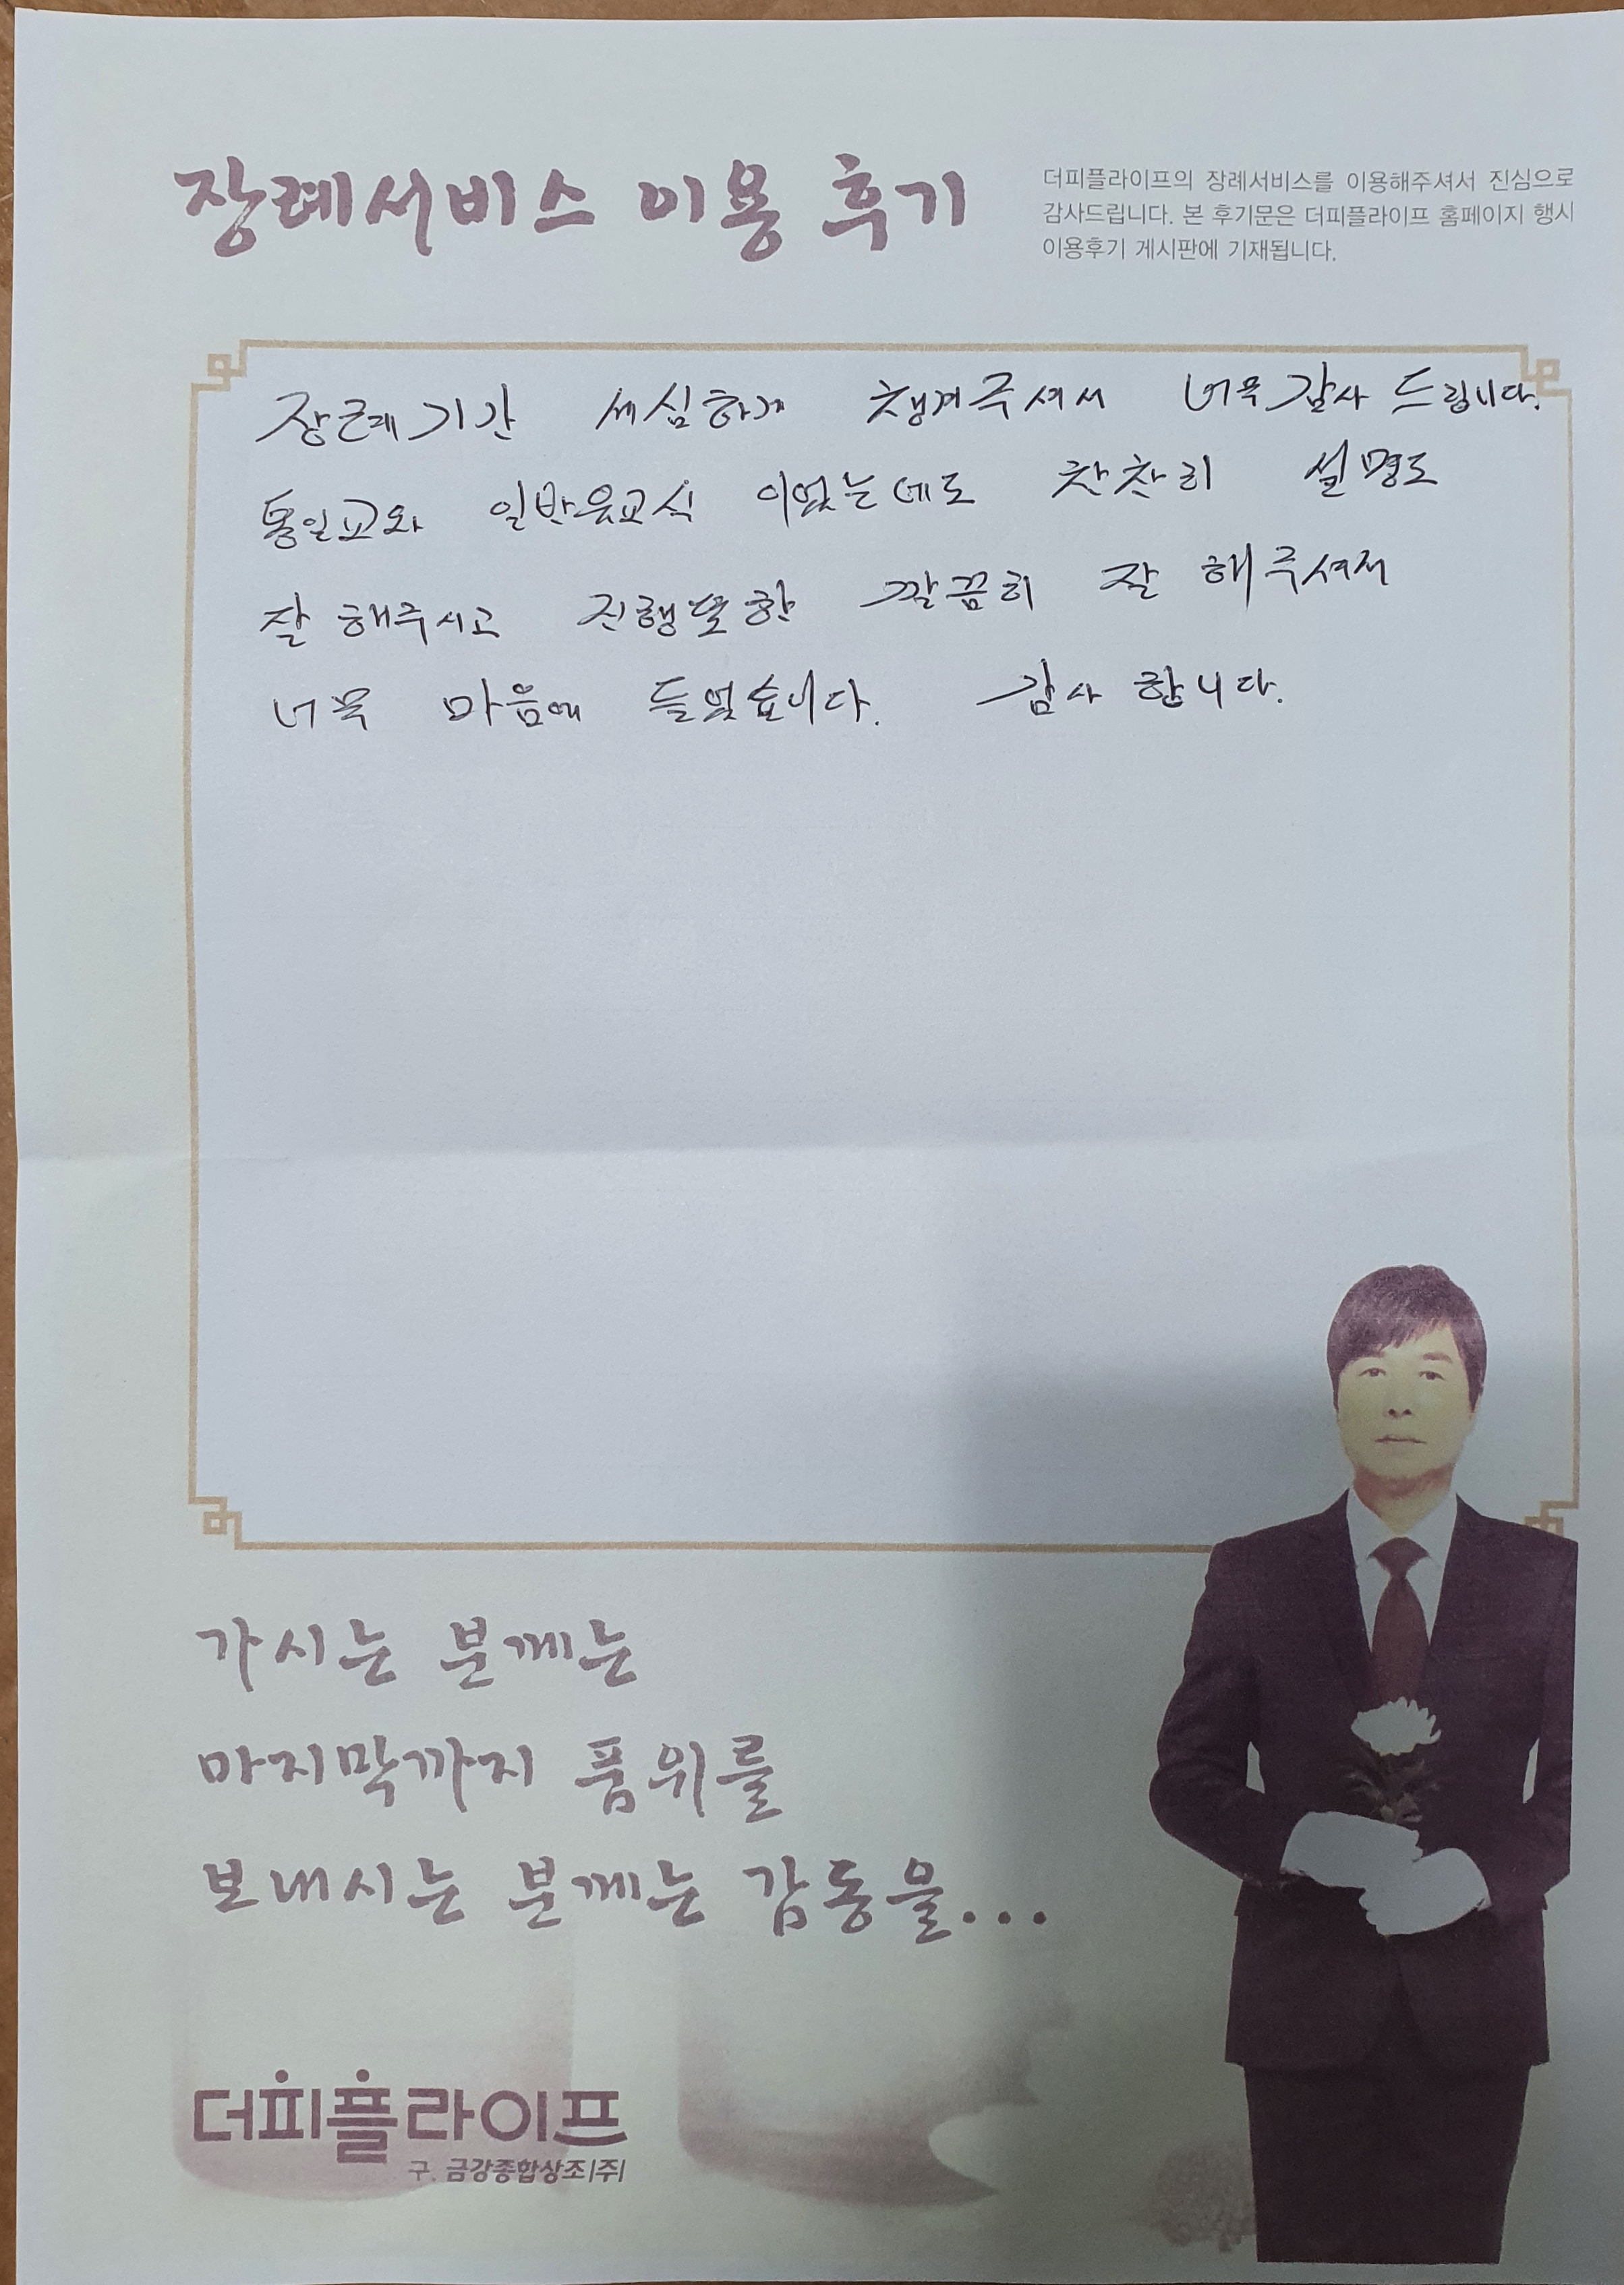 장례서비스 이용 후기
더피플라이프의 장례서비스를 이용해주셔서 진심으로
감사드립니다. 본 후기문은 더피플라이프 홈페이지 행사
이용후기 게시판에 기재됩니다.
장례기간 세심하게 챙겨주셔서 너무 감사 드립니다.
통일교와 일반유교식 이었는데도 찬찬히 설명도
잘 해주시고 진행또한 깔끔히 잘 해주셔서
너무 마음에 들었습니다. 감사 합니다.
가시는 분께는
마지막까지 품위를
보내시는 분께는 감동을...
더피플라이프
구. 금강종합상조|주|